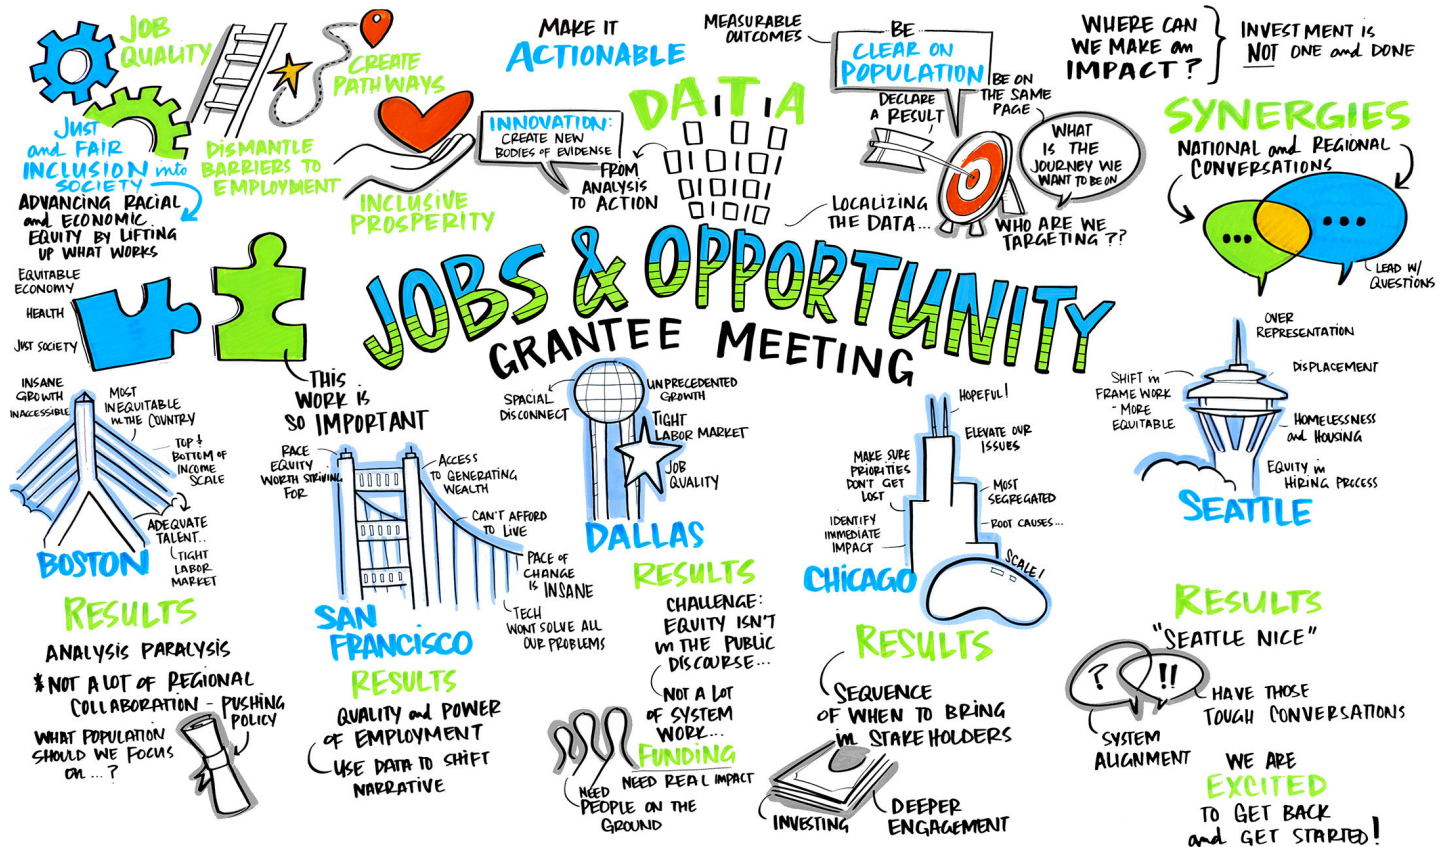 JOB
QUALITY
DISMANTLE
BARRIERS TO
EMPLOYMENT
CREATE
PATHWAYS
JUST
and FAIR
INCLUSION into
SOCIETY
ADVANCING RACIAL
and ECONOMIC
EQUITY BY LIFTING
UP WHAT WORKS
INCLUSIVE
PROSPERITY
MAKE IT
ACTIONABLE
INNOVATION:
CREATE NEW
BODIES OF EVIDENSE
DATA
FROM
ANALYSIS
TO ACTION
MEASURABLE
OUTCOMES
BE
CLEAR ON
POPULATION
DECLARE
A RESULT
BE ON
THE SAME
PAGE
WHAT
IS THE
JOURNEY WE
WANT TO BE ON
LOCALIZING
THE DATA...
WHO ARE WE
TARGETING??
WHERE CAN
WE MAKE an
IMPACT?
INVESTMENT is
NOT ONE and DONE
SYNERGIES
NATIONAL and REGIONAL
CONVERSATIONS
LEAD W/
QUESTIONS
EQUITABLE
ECONOMY
HEALTH
JUST SOCIETY
THIS
WORK is
SO IMPORTANT
JOBS & OPPORTUNITY
GRANTEE MEETING
INSANE
GROWTH
INACCESSIBLE
MOST
INEQUITABLE
in THE COUNTRY
TOP !
BOTTOM OF
INCOME
SCALE
ADEQUATE
TALENT..
TIGHT
LABOR
MARKET
BOSTON
RESULTS
ANALYSIS PARALYSIS
* NOT A LOT OF REGIONAL
COLLABORATION - PUSHING
POLICY
WHAT POPULATION
SHOULD WE FOCUS
on...?
RACE
EQUITY
WORTH STRIVING
FOR
ACCESS
TO GENERATING
WEALTH
CAN'T AFFORD
TO LIVE
PACE OF
CHANGE
is INSANE
TECH
WONT SOLVE ALL
OUR PROBLEMS
SAN
FRANCISCO
RESULTS
QUALITY and POWER
OF EMPLOYMENT
USE DATA TO SHIFT
NARRATIVE
SPACIAL
DISCONNECT
UNPRECEDENTED
GROWTH
TIGHT
LABOR MARKET
JOB
QUALITY
DALLAS
RESULTS
CHALLENGE:
EQUITY ISN'T
in THE PUBLIC
DISCOURSE...
NOT A LOT
OF SYSTEM
WORK...
FUNDING
NEED REAL IMPACT
NEED
PEOPLE ON THE
GROUND
HOPEFUL!
ELEVATE OUR
ISSUES
MAKE SURE
PRIORITIES
DON'T GET
LOST
MOST
SEGREGATED
IDENTIFY
IMMEDIATE
IMPACT
ROOT CAUSES...
SCALE!
CHICAGO
RESULTS
SEQUENCE
OF WHEN TO BRING
in STAKEHOLDERS
INVESTING
DEEPER
ENGAGEMENT
OVER
REPRESENTATION
DISPLACEMENT
SHIFT in
FRAME WORK
- MORE
EQUITABLE
HOMELESSNESS
and HOUSING
EQUITY in
HIRING PROCESS
SEATTLE
RESULTS
"SEATTLE NICE"
?
!!
HAVE THOSE
TOUGH CONVERSATIONS
SYSTEM
ALIGNMENT
WE ARE
EXCITED
TO GET BACK
and GET STARTED!